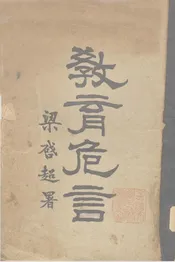 教育危言
梁啓超署